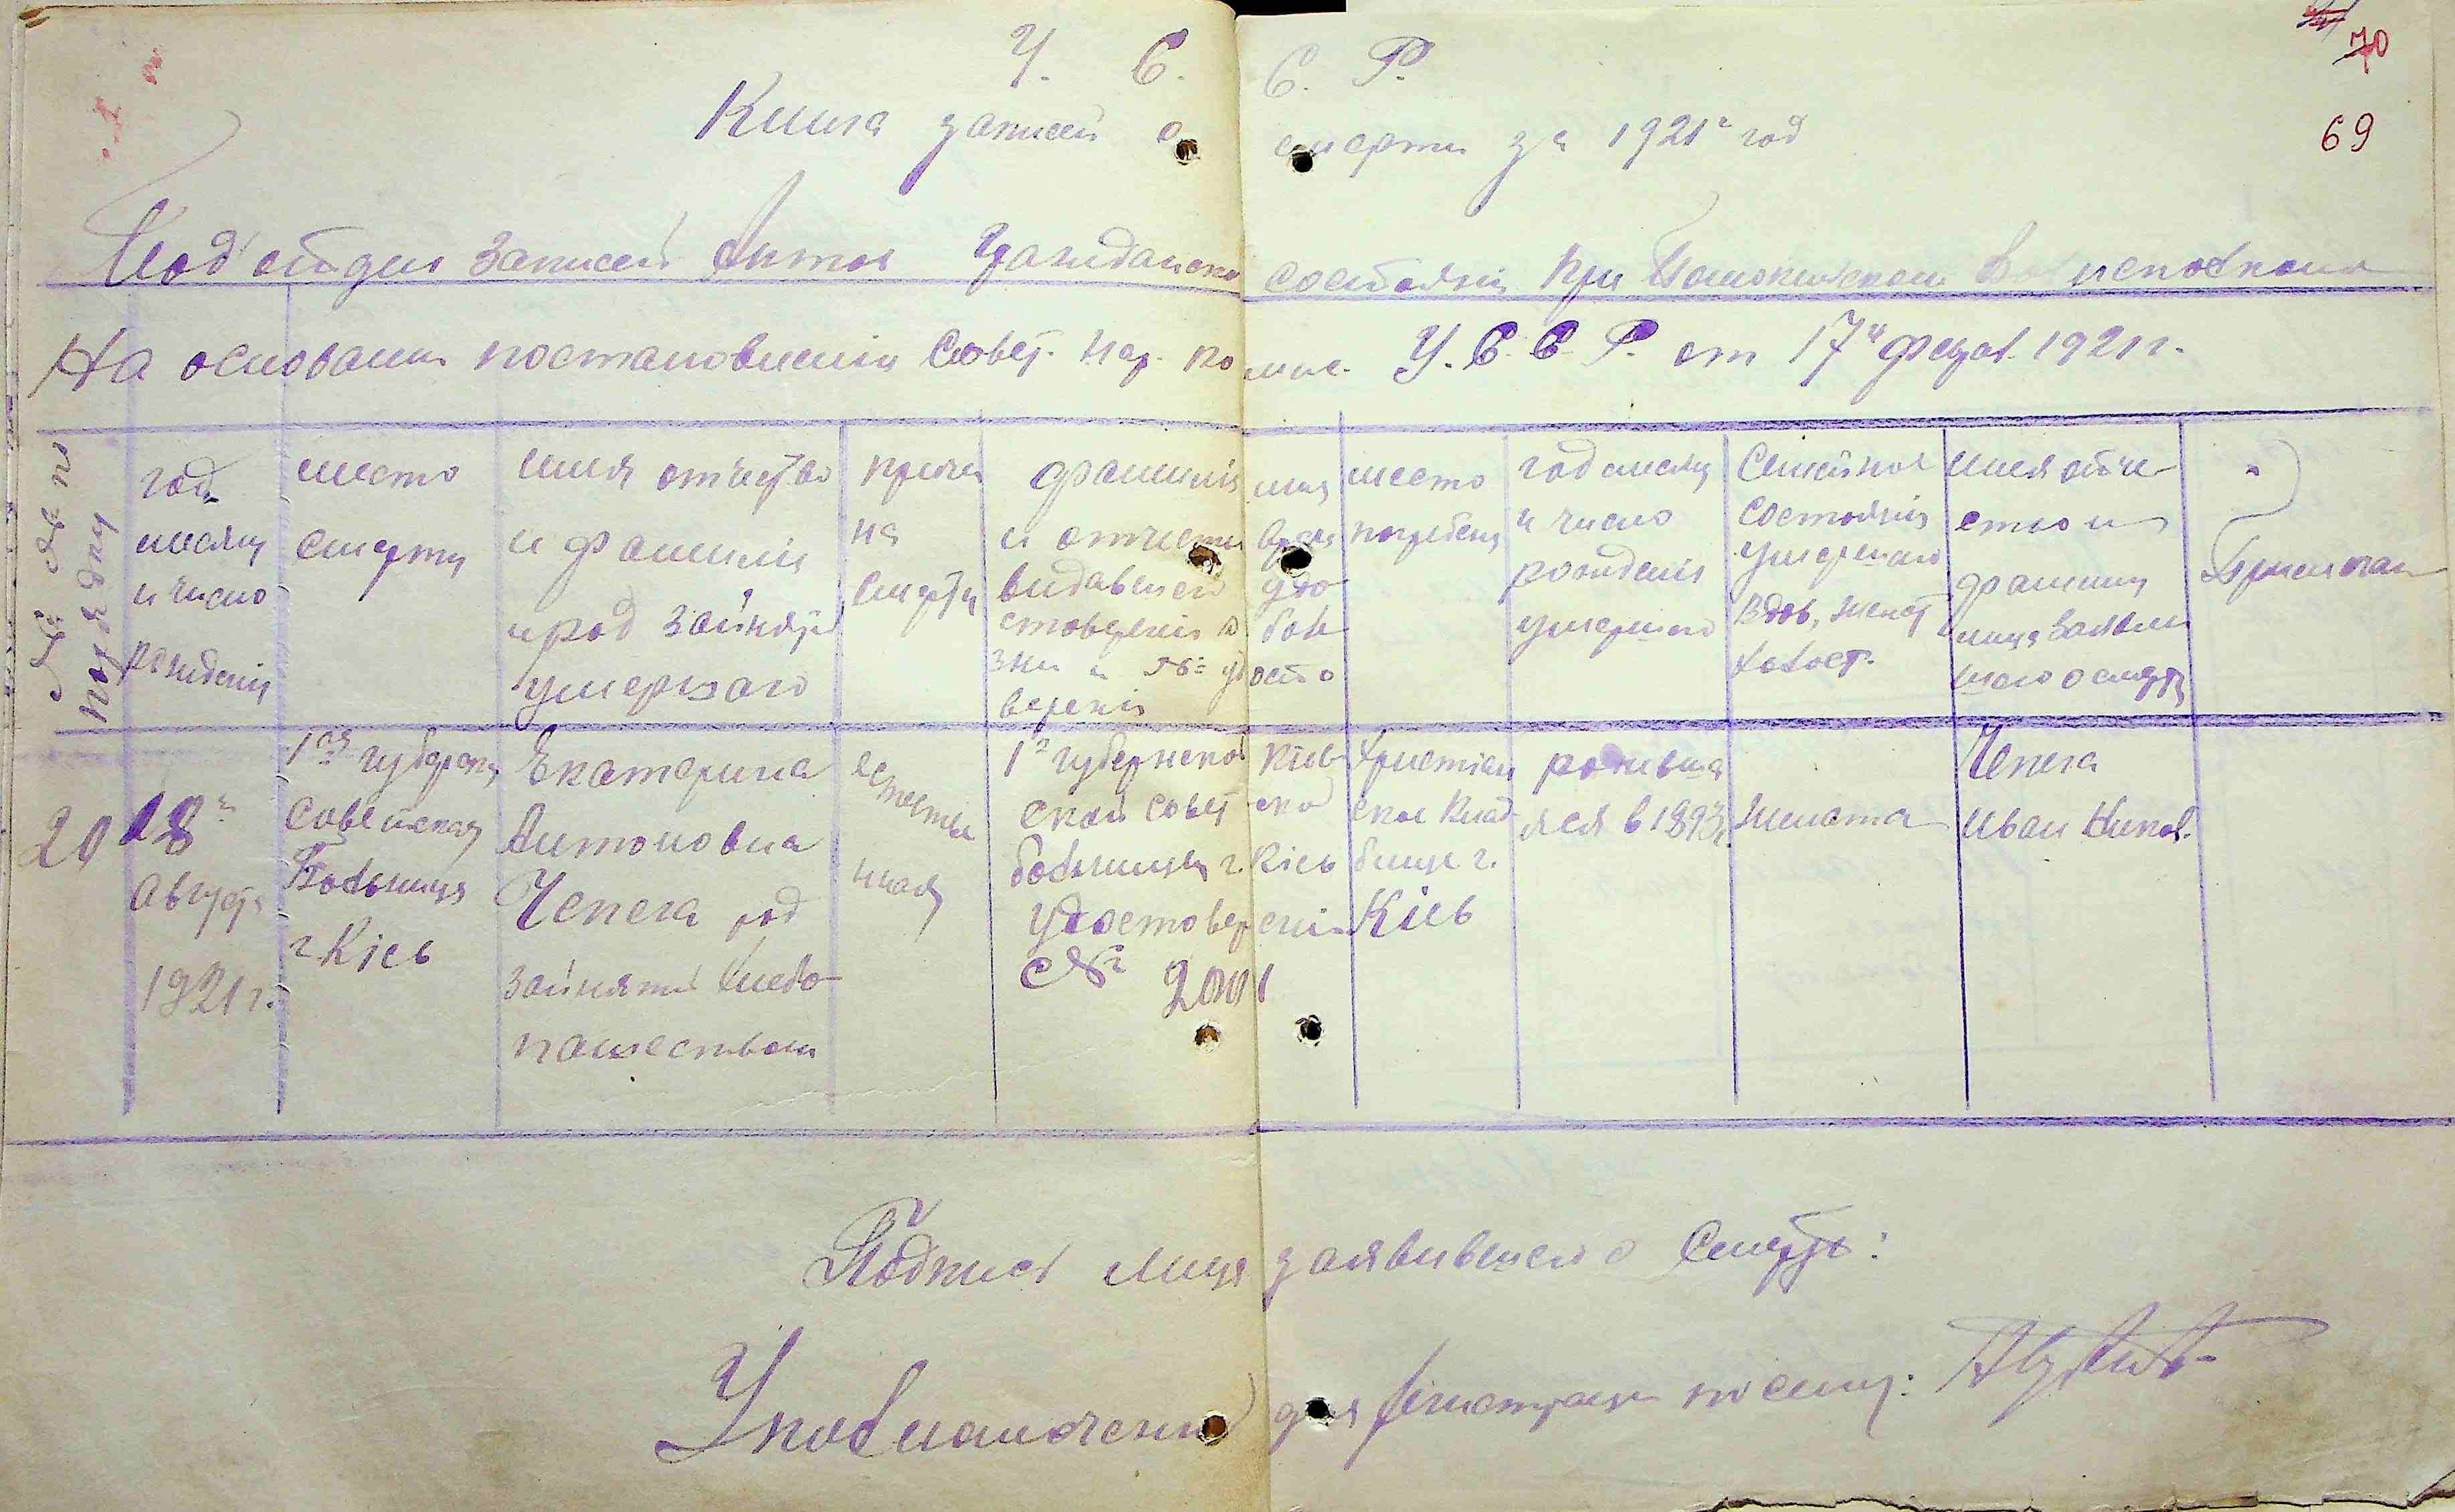 70
69
У. С. С. Р.
Книга записей о смерти за 1921 г. год
Под'отдел Записей Актов Гражданско состояния При исполкома
На основании постановления Совет. Нар. Комис. У.С.С.Р. от 17го феврал. 1921 г.
№№ по порядку
год месяц и число рождения
место смерти
имя отчество и фамилия и род занятия умершаго
причина смерти
фамилия имя и отчество врача видавшего удостоверения о болезни и № удостоверения
место погребения
год месяц и число рождения умершаго
Семейное состояние умершаго вдов, женат, холост.
имя отчество и фамилия лица заявившего о смерти
Примечан
20
18го Августа 1921 г.
1ая губернск Советская Больница г. Кіев
Екатерина Антоновна Чепега род занятия хлебопашеством
1й губернской Киевской совет больницы г. Кіев удостоверения № 2001
Христианское Кладбище г. Кіев
родившаяся в 1893 г.
жената
Чепега Иван Никол.
Подпись лица заявившего о Смерти:
Уполномоченный для регистрации по смер: